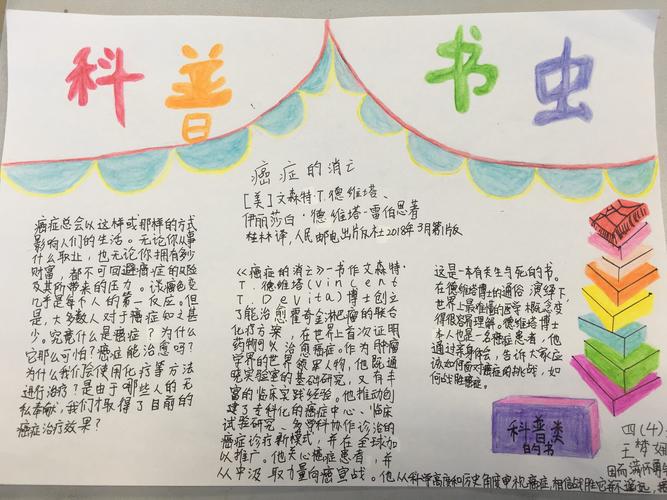 科普书虫
癌症的消亡
[美]文森特·T.德维塔、
伊丽莎白·德维塔-雷伯恩著
桂林译,人民邮电出版社2018年3月第1版
癌症总会以这样或那样的方式
影响人们的生活。无论你从事
什么职业,也无论你拥有多少
财富,都不可回避癌症的风险
及其所带来的压力。谈癌色变
几乎是每个人的第一反应。但
是,大多数人对于癌症知之甚
少。究竟什么是癌症?为什么
它那么可怕?癌症能治愈吗?
为什么我们会使用化疗等方法
进行治疗?是由于哪些人的无
私奉献,我们才取得了目前的
癌症治疗效果?
《癌症的消亡》一书作文森特·
T.德维塔(Vincent
T.Devita)博士创立
了能治愈霍奇金淋巴瘤的联合
化疗方案,在世界上首次证明
药物可以治愈癌症。作为肿瘤
学界的世界领军人物,他既通
晓实验室的基础研究,又有丰
富的临床实践经验,他推动创
建了专科化的癌症中心、临床
试验研究、多学科协作诊治的
癌症诊疗新模式,并在全球加
以推广。他关心癌症患者,并
从中汲取力量向癌宣战。他从科学高度和历史角度审视癌症,相信战胜它并不遥远,
这是一本有关生与死的书。
在德维塔博士的通俗演绎下,
世界上最难懂的医学概念变
得很容易理解。德维塔博士
本人也是一名癌症患者,他
通过亲身体会,告诉大家应
该如何面对癌症的挑战,如
何战胜癌症。
科普类
的书
四(4)
王梦
因而满怀勇气